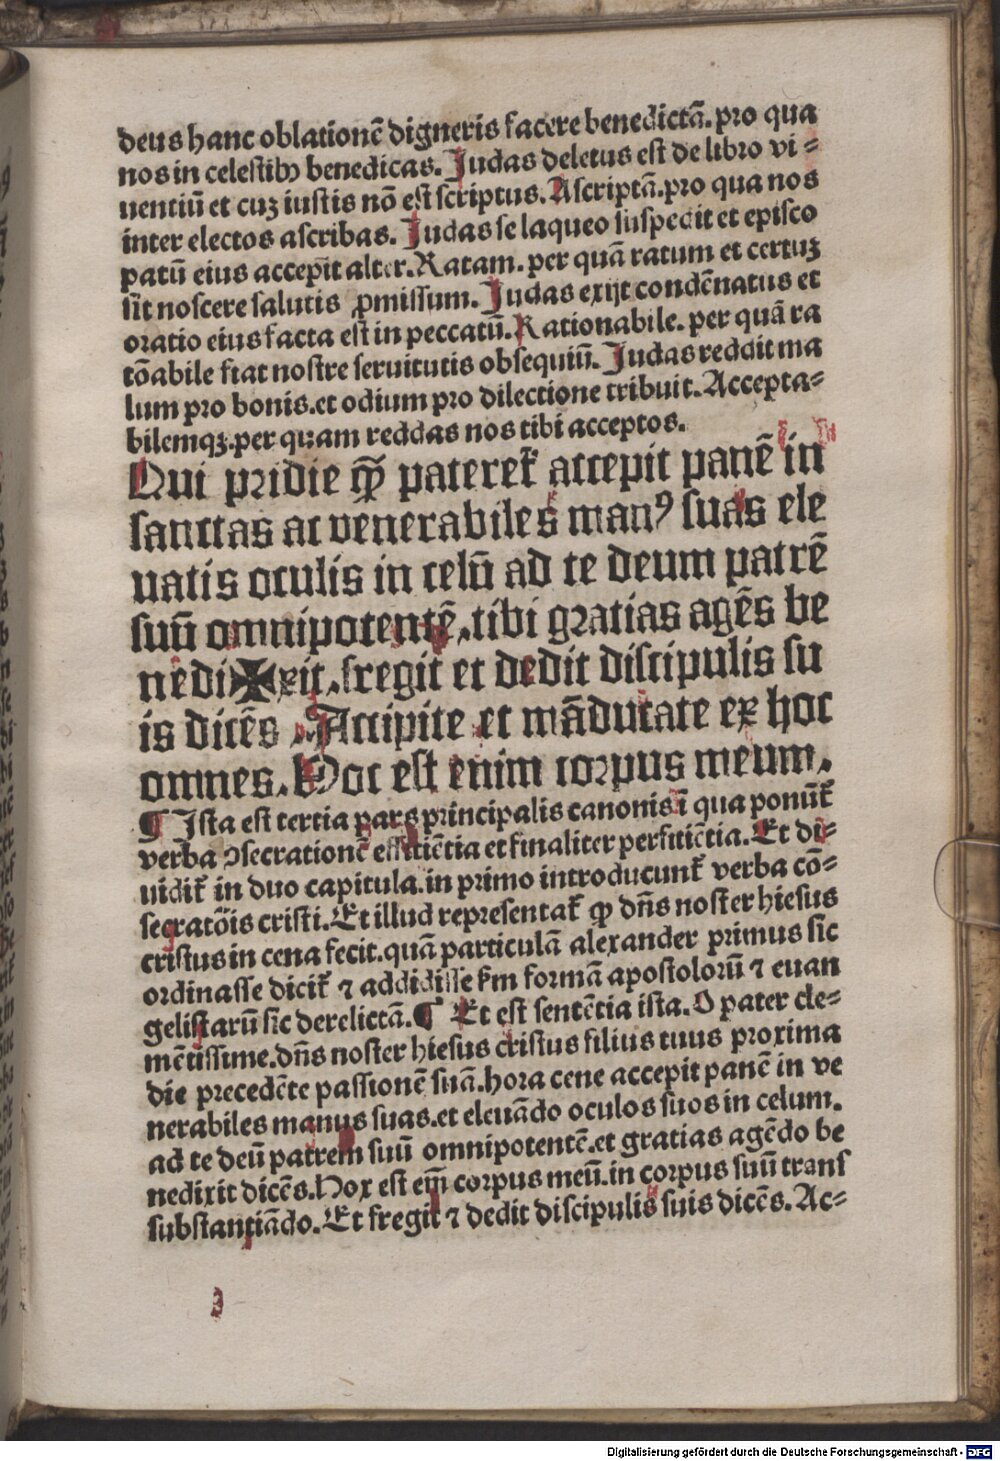 deus hanc oblationē digneris facere benedictā. pro qua
nos in celestibꝰ benedicas. Judas deletus est de libro vi⸗
uentiū et cuz iustis nō est scriptus. Ascriptā. pro qua nos
inter electos ascribas. Judas se laqueo suspēdit et episco
patū eius accepit alter. Ratam. per quā ratum et certuz
sit noscere salutis ꝓmissum. Judas exijt condēnatus et
oratio eius facta est in peccatū. Rationabile. per quā ra
tōabile fiat nostre seruitutis obsequiū. Judas reddit ma
lum pro bonis. et odium pro dilectione tribuit. Accepta⸗
bilemqꝫ. per quam reddas nos tibi acceptos.
Qui pridie q̄ȝ pateretꝛ̄ accepit panē in
sanctas ac venerabiles manꝰ suas ele
uatis oculis in celū ad te deum patrē
suū omnipotentē, tibi gratias agēs be
nedi✠xit, fregit et dedit discipulis su
is dicēs, Accipite et māducate ex hoc
omnes. Hoc est enim corpus meum.
¶ Ista est tertia pars principalis canonis ī qua ponūt̄
verba ↄsecrationē efficiētia et finaliter perficiētia. Et di⸗
uidit̄ in duo capitula. in primo introducunt̄ verba cō⸗
secratōis cristi. Et illud representat̄ ꝙ dn̄s noster hiesus
cristus in cena fecit. quā particulā alexander primus sic
ordinasse dicit̄ ⁊ addidisse ẜm formā apostolorū ⁊ euan
gelistarū sic derelictā. ¶ Et est sentētia ista. O pater cle⸗
mētissime. dn̄s noster hiesus cristus filius tuus proxima
die precedēte passionē suā. hora cene accepit panē in ve
nerabiles manus suas. et eleuādo oculos suos in celum.
ad te deū patrem suū omnipotentē. et gratias agēdo be
nedixit dicēs. Hoc est em̄ corpus meū. in corpus suū trans
substantiādo. Et fregit ⁊ dedit discipulis suis dicēs. Ac⸗
Digitalisierung gefördert durch die Deutsche Forschungsgemeinschaft - DFG